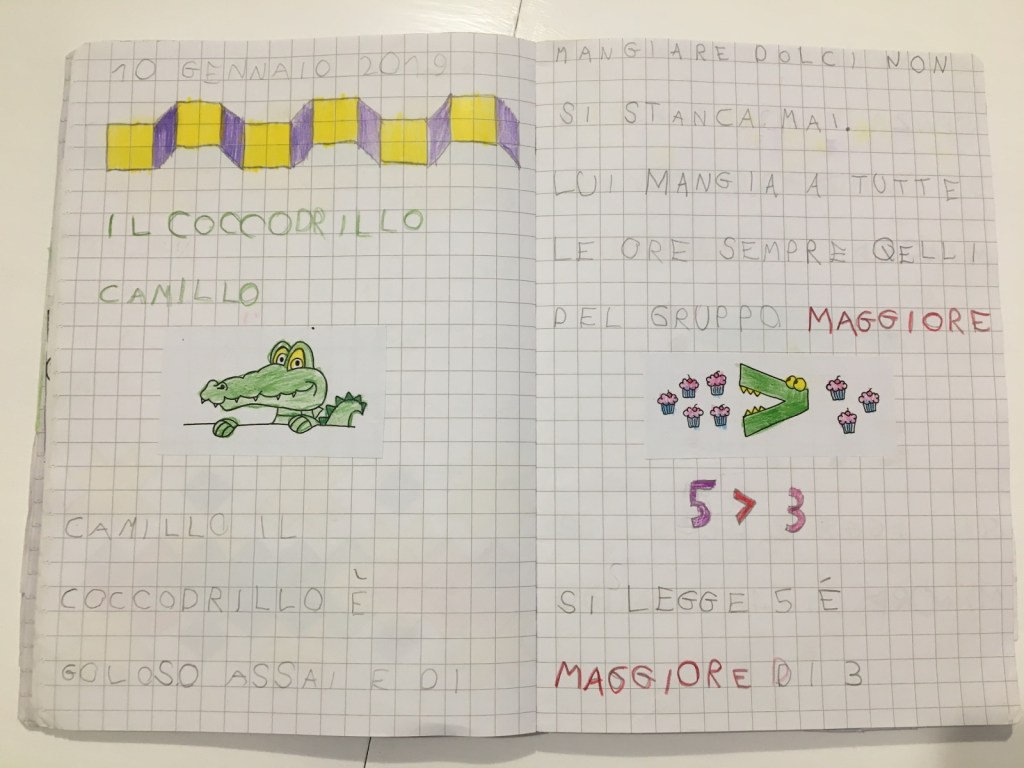 10 GENNAIO 2019
IL COCCODRILLO
CAMILLO
CAMILLO IL
COCCODRILLO È
GOLOSO ASSAI E DI
MANGIARE DOLCI NON
SI STANCA MAI.
LUI MANGIA A TUTTE
LE ORE SEMPRE QELLI
DEL GRUPPO MAGGIORE
5 > 3
SI LEGGE 5 É
MAGGIORE DI 3